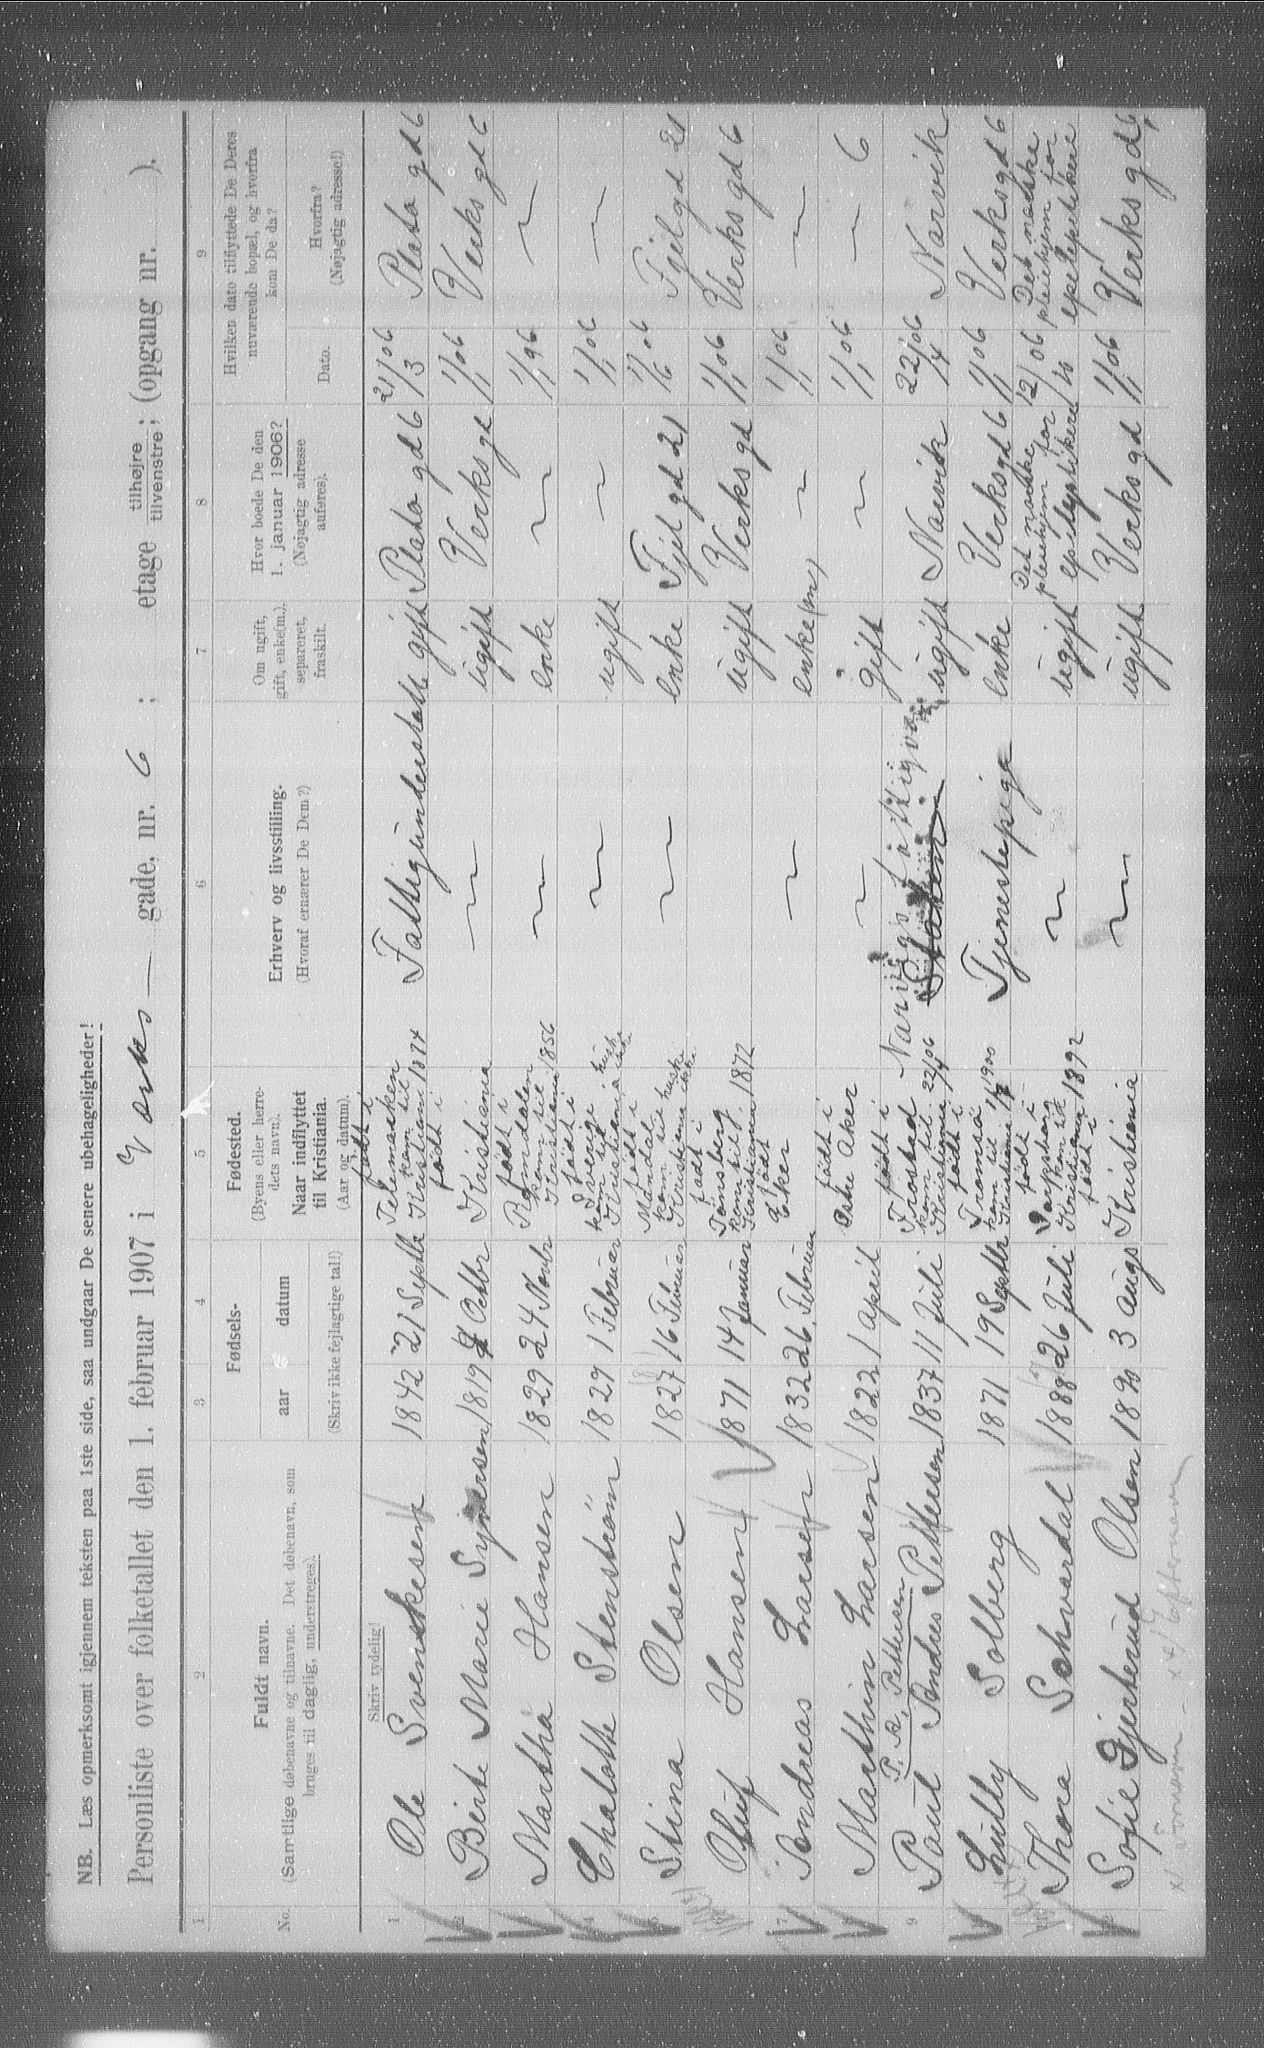 NB. Læs opmerksomt igjennem teksten paa 1ste side, saa undgaar De senere ubehageligheder!
Personliste over folketallet den 1. februar 1907 i Verks — gade, nr. 6 ; etage tilhøjre tilvenstre ; (opgang nr. ).
1 2 3 4 5 6 7 8 9
No. Fuldt navn. (Samtlige døbenavne og tilnavne. Det døbenavn, som bruges til daglig, understreges).
Fødsels- aar datum (Skriv ikke fejlagtige tal!)
Fødested. (Byens eller herredets navn). Naar indflyttet til Kristiania. (Aar og datum).
Erhverv og livsstilling. (Hvoraf ernærer De Dem?)
Om ugift, gift, enke(m.), separeret, fraskilt.
Hvor boede De den 1. januar 1906? (Nøjagtig adresse anføres).
Hvilken dato tilflyttede De Deres nuværende bopæl, og hvorfra kom De da?
Dato. Hvorfra? (Nøjagtig adresse!)
Skriv tydelig!
1 Ole Svenkesen 1842 21 Septbr født i Telemarken kom til Kristiania 1874 Fattigunderstøtt gift Plato gd 6 21/3 06 Plato gd 6
2 Berte Marie Syversen 1819 Octbr født i Kristiania ~ ugift Verks gd 1/1 06 Verks gd 6
3 Martha Hansen 1829 24 Novbr født i Romdalen kom til Kristiania 1856 ~ enke ~ 1/1 96 ~
4 Chalotte Stenström 1829 1 Februar født i Sverige kom til Kristiania husker ikke ~ ugift ~ 1/1 06 ~
5 Stina Olsen 1827 16 Februar født i Mandal kom til Kristiania husker ikke ~ enke Fjel gd 21 1/6 06 Fjel gd 21
Oluf Hansen 1871 14 Januar født i Tønsberg kom til Kristiania 1872 ugift Verks gd 1/1 06 Verks gd 6
7 Andreas Larsen 1832 26 Februar født i Eker ~ enke(m) ~ 1/1 06 ~
Marthin Larsen 1822 1 April født i Østre Aker ~ gift ~ 1/1 06 ~ 6
P. A. Pettersen
9 Paul Andreas Pettersen 1837 11 Juli født i Trostad kom til Kristiania 22/4 06 ugift Narvik 22/4 06 Narvik
Lully Solberg 1871 19 Septbr født i Tromsø kom til Kristiania 1900 Tjenestepige enke Verks gd 6 1/1 06 Verks gd 6
Thora Schvardal 1888 26 Juli født i Sarpsborg kom til Kristiania 1892 ~ ugift Det norske pleiehjem for epileptikere 12/10 06 Det norske pleiehjem for epelepetikere
Sofie Gjerterud Olsen 1890 3 Augs født i Kristiania ~ ugift Verks gd 1/1 06 Verks gd 6
x/ Fornavn xx/ Efternavn